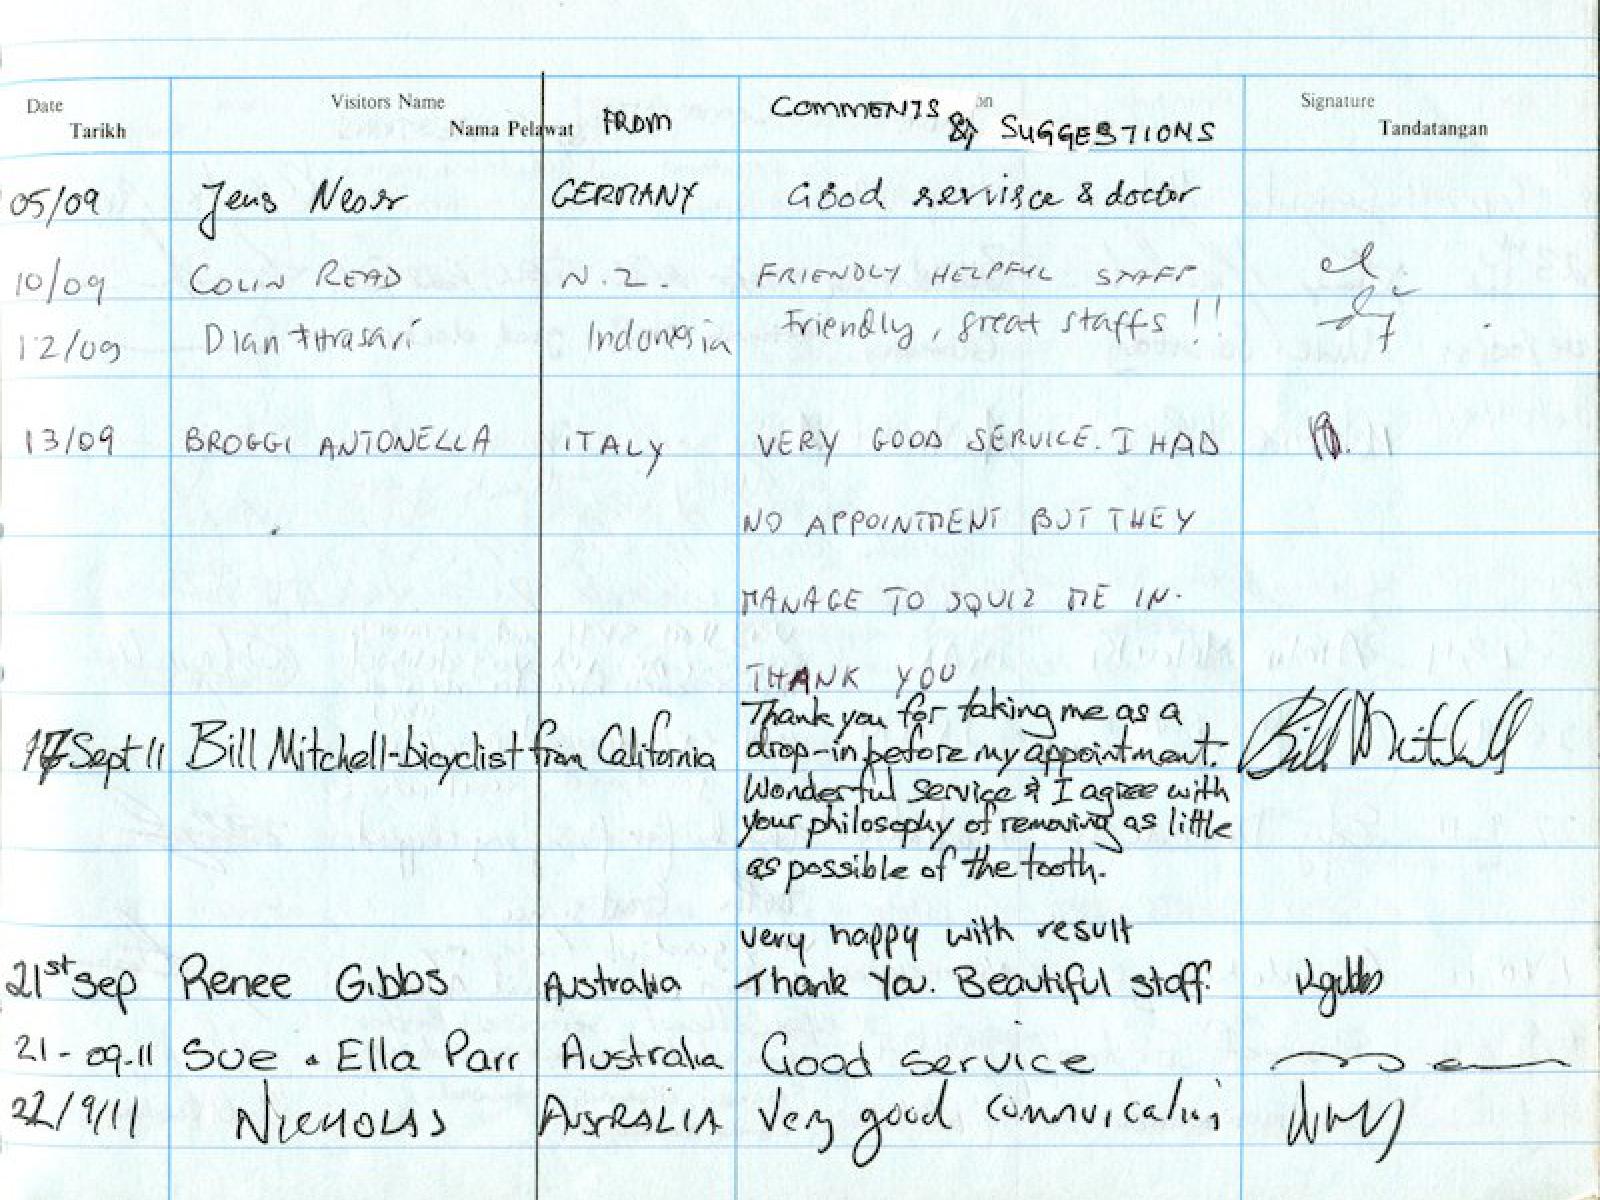 Date Visitors Name Signature
Tarikh Nama Pelawat FROM COMMENTS & SUGGESTIONS Tandatangan
05/09 Jens Neser GERMANY Good servisce & doctor
10/09 COLIN READ N.Z. FRIENDLY HELPFUL STAFF
12/09 Dian Indonesia Friendly, great staffs !!
13/09 BROGGI ANTONELLA ITALY VERY GOOD SERVICE. I HAD
NO APPOINTMENT BUT THEY
MANAGE TO SQUIZ ME IN.
THANK YOU
17 Sept 11 Bill Mitchell-bicyclist from California Thank you for taking me as a
drop-in before my appointment. Bill Mitchell
Wonderful service & I agree with
your philosophy of removing as little
as possible of the tooth.
very happy with result
21st Sep Renee Gibbs Australia Thank You. Beautiful staff. Rgibbs
21-09-11 Sue & Ella Parr Australia Good service
22/9/11 NICHOLAS AUSTRALIA Very good communication